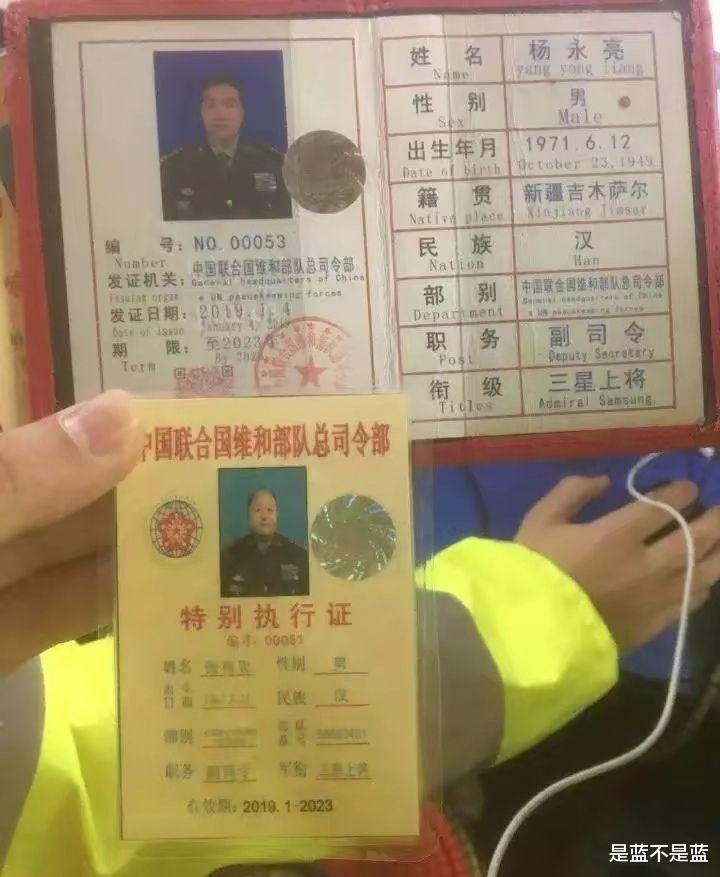 编 号:NO.00053
Number
发证机关:中国联合国维和部队总司令部
Issuing organ General headquarters of China
e UN peacekeeping forces
发证日期:2019.1.4
Date of issue January 4, 2019
期 限:至2023
Term By 202
姓 名 杨永亮
Name yang yong liang
性 别 男
Sex Male
出生年月 1971.6.12
Date of birth October 23.1949
籍 贯 新疆吉木萨尔
Native place Xinjiang Jimsar
民 族 汉
Nation Han
部 别 中国联合国维和部队总司令部
Department General headquarters of China
e UN peacekeeping forces
职 务 副司令
Post Deputy Secretary
衔 级 三星上将
Titles Admiral Samsung.
中国联合国维和部队总司令部
特别执行证
编号:00051
姓名 性别 男
民族 汉
部别
职务 副司令 军衔 三星上将
有效期:2019.1-2023
是蓝不是蓝